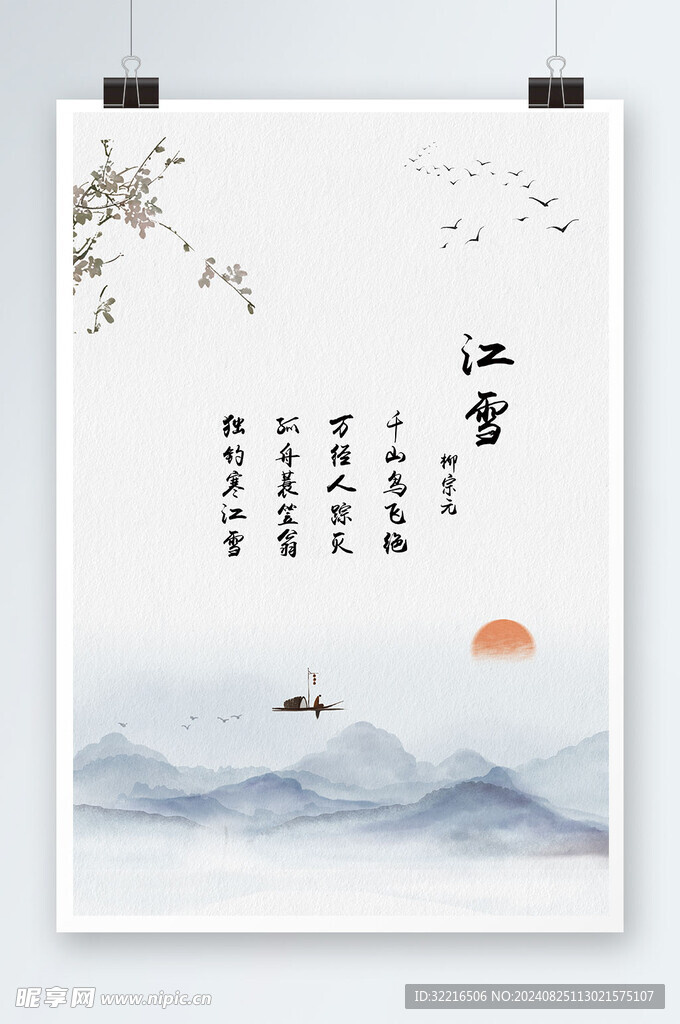 江雪
柳宗元
千山鸟飞绝
万径人踪灭
孤舟蓑笠翁
独钓寒江雪
昵享网 www.nipic.cn
ID:32216506 NO:20240825113021575107